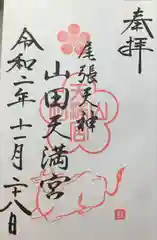 奉拝
尾張天神
山田天満宮
令和二年十一月二十八日